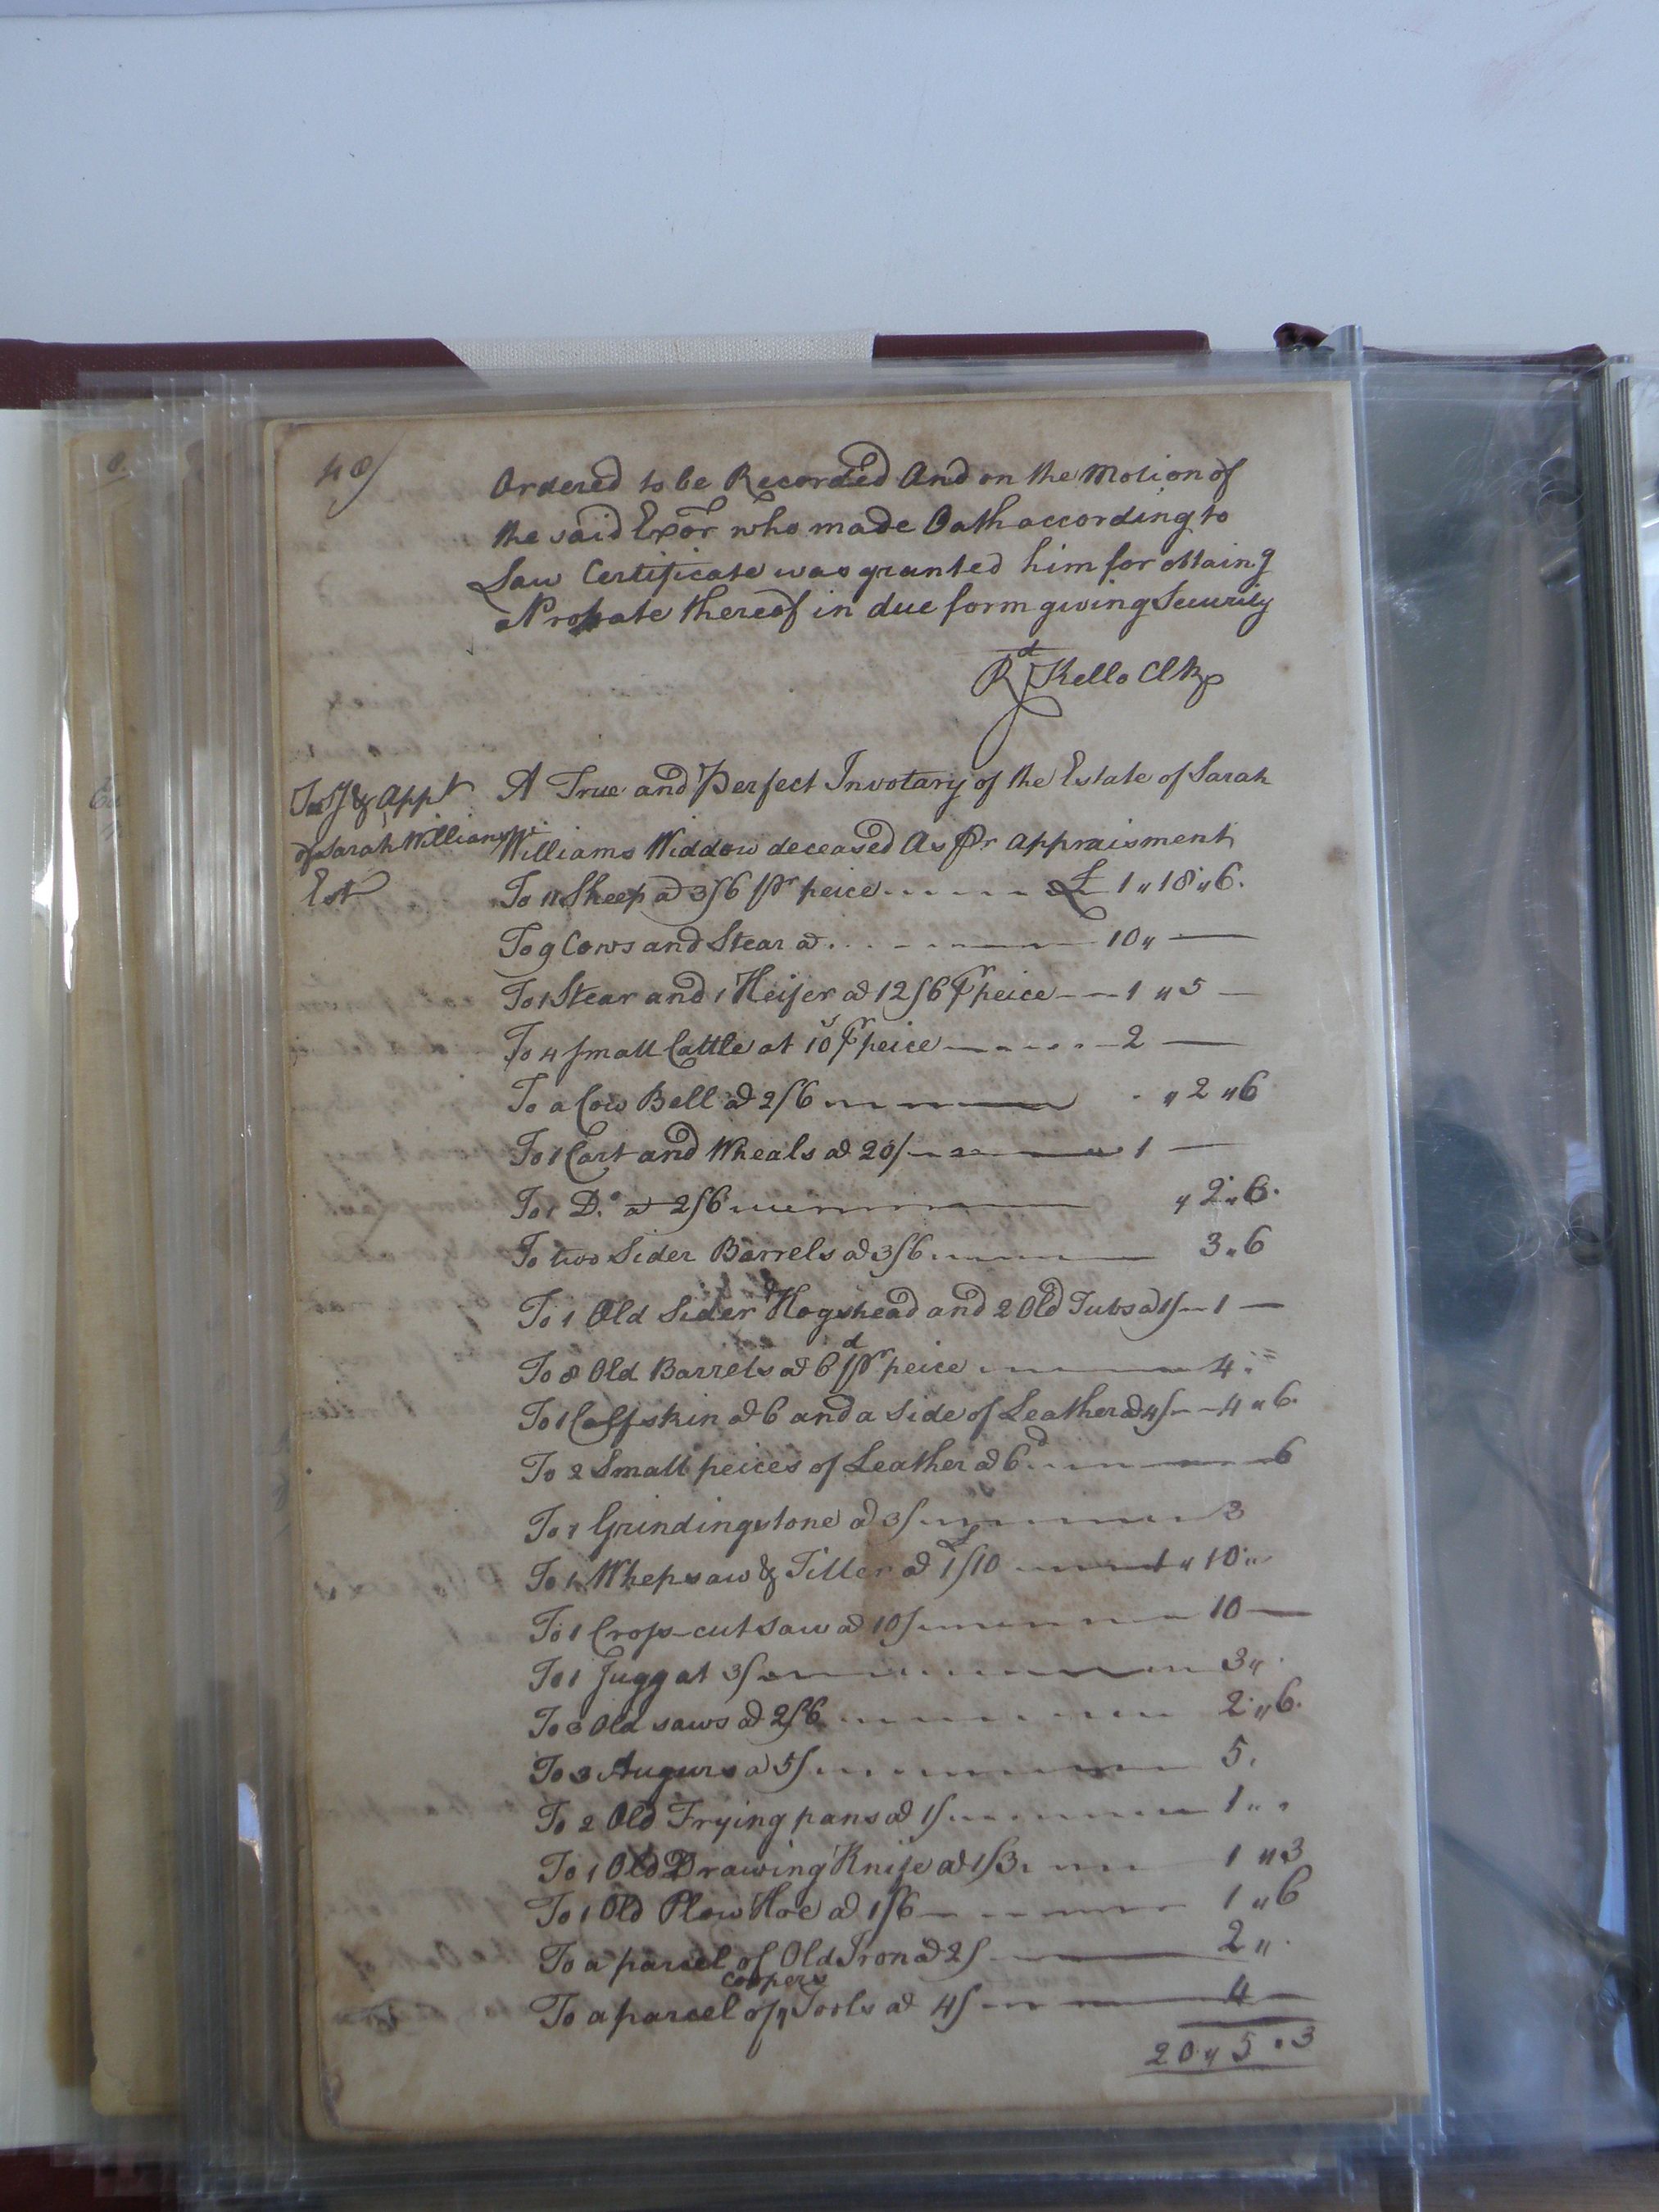 48/
Ordered to be Recorded And on the Motion of
the said Exor who made Oath according to
Law Certificate was granted him for obtaing
a Probate thereof in due form giving Security
Rd Kello Clk
Appt
of Sarah Williams
Est
A True and Perfect Invotary of the Estate of Sarah
Williams Widdow deceased As pr Appraisment
To 11 Sheep at 3/6 pr peice £ 1 " 18 " 6.
To 9 Cows and Stear at 10 "
To 1 Stear and 1 Heifer at 12/6 pr peice 1 " 5
To 4 Small Cattle at 10s pr peice 2
To a Cow Bell at 2/6 " 2 " 6
To 1 Cart and Wheals at 20/ 1
To 1 Do at 2/6 " 2 " 6.
To two Sider Barrels at 3/6 3 " 6
To 1 Old Sider Hogshead and 2 Old Tubs at 1/ 1
To 8 Old Barrels at 6d pr peice 4
To 1 Calfskin at 6 and a Side of Leather at 4/ 4 " 6.
To 2 Small peices of Leather at 6d 6
To 1 Grindingstone at 3/ 3
To 1 Whepsaw & Tiller at £1/10 1 " 10 "
To 1 Cross-cut Saw at 10/ 10
To 1 Jugg at 3/ 3 "
To 3 Old saws at 2/6 2 " 6.
To 3 Augurs at 5/ 5.
To 2 Old Frying pans at 1/ 1 "
To 1 Old Drawing Knife at 1/3 1 " 3
To 1 Old Plow Hoe at 1/6 1 " 6
To a parcel of Old Iron at 2/ 2 "
To a parcel of Coopers Tools at 4/ 4
20 " 5 " 3